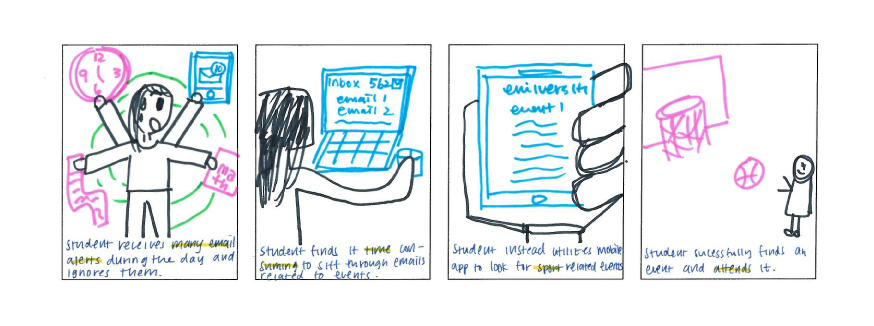 12
9
3
6
10
ma
th
Student receives many email
alerts during the day and
ignores them.
Inbox 562
email 1
email 2
Student finds it time con-
suming to sift through emails
related to events.
event 1
Student instead utilizes mobile
app to look for sport related events
Student sucessfully finds an
event and attends it.